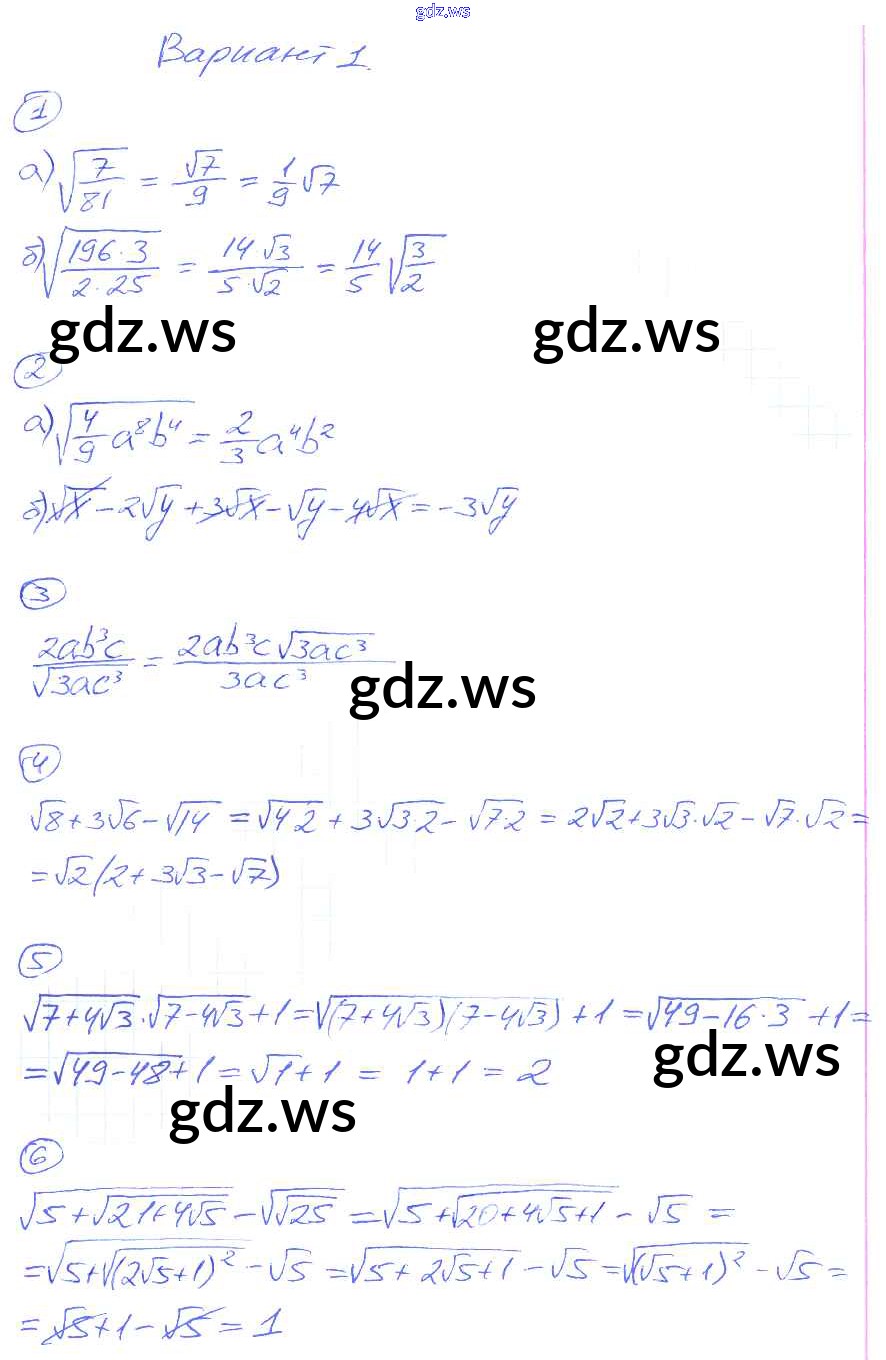 gdz.ws
Вариант 1.
1
а) √(7/81) = √7/9 = 1/9 √7
б) √(196·3/2·25) = 14√3/5·√2 = 14/5 √(3/2)
gdz.ws gdz.ws
2
а) √(4/9 a⁸b⁴) = 2/3 a⁴b²
б) √x - 2√y + 3√x - √y - 4√x = -3√y
3
2ab³c/√(3ac³) = 2ab³c√(3ac³)/3ac³
gdz.ws
4
√8 + 3√6 - √14 = √(4·2) + 3√(3·2) - √(7·2) = 2√2 + 3√3·√2 - √7·√2 =
= √2(2 + 3√3 - √7)
5
√(7+4√3)·√(7-4√3) + 1 = √((7+4√3)(7-4√3)) + 1 = √(49-16·3) + 1 =
= √(49-48) + 1 = √1 + 1 = 1 + 1 = 2
gdz.ws
gdz.ws
6
√(5+√(21+4√5)) - √√25 = √(5+√(20+4√5+1)) - √5 =
= √(5+√((2√5+1)²)) - √5 = √(5+2√5+1) - √5 = √((√5+1)²) - √5 =
= √5 + 1 - √5 = 1